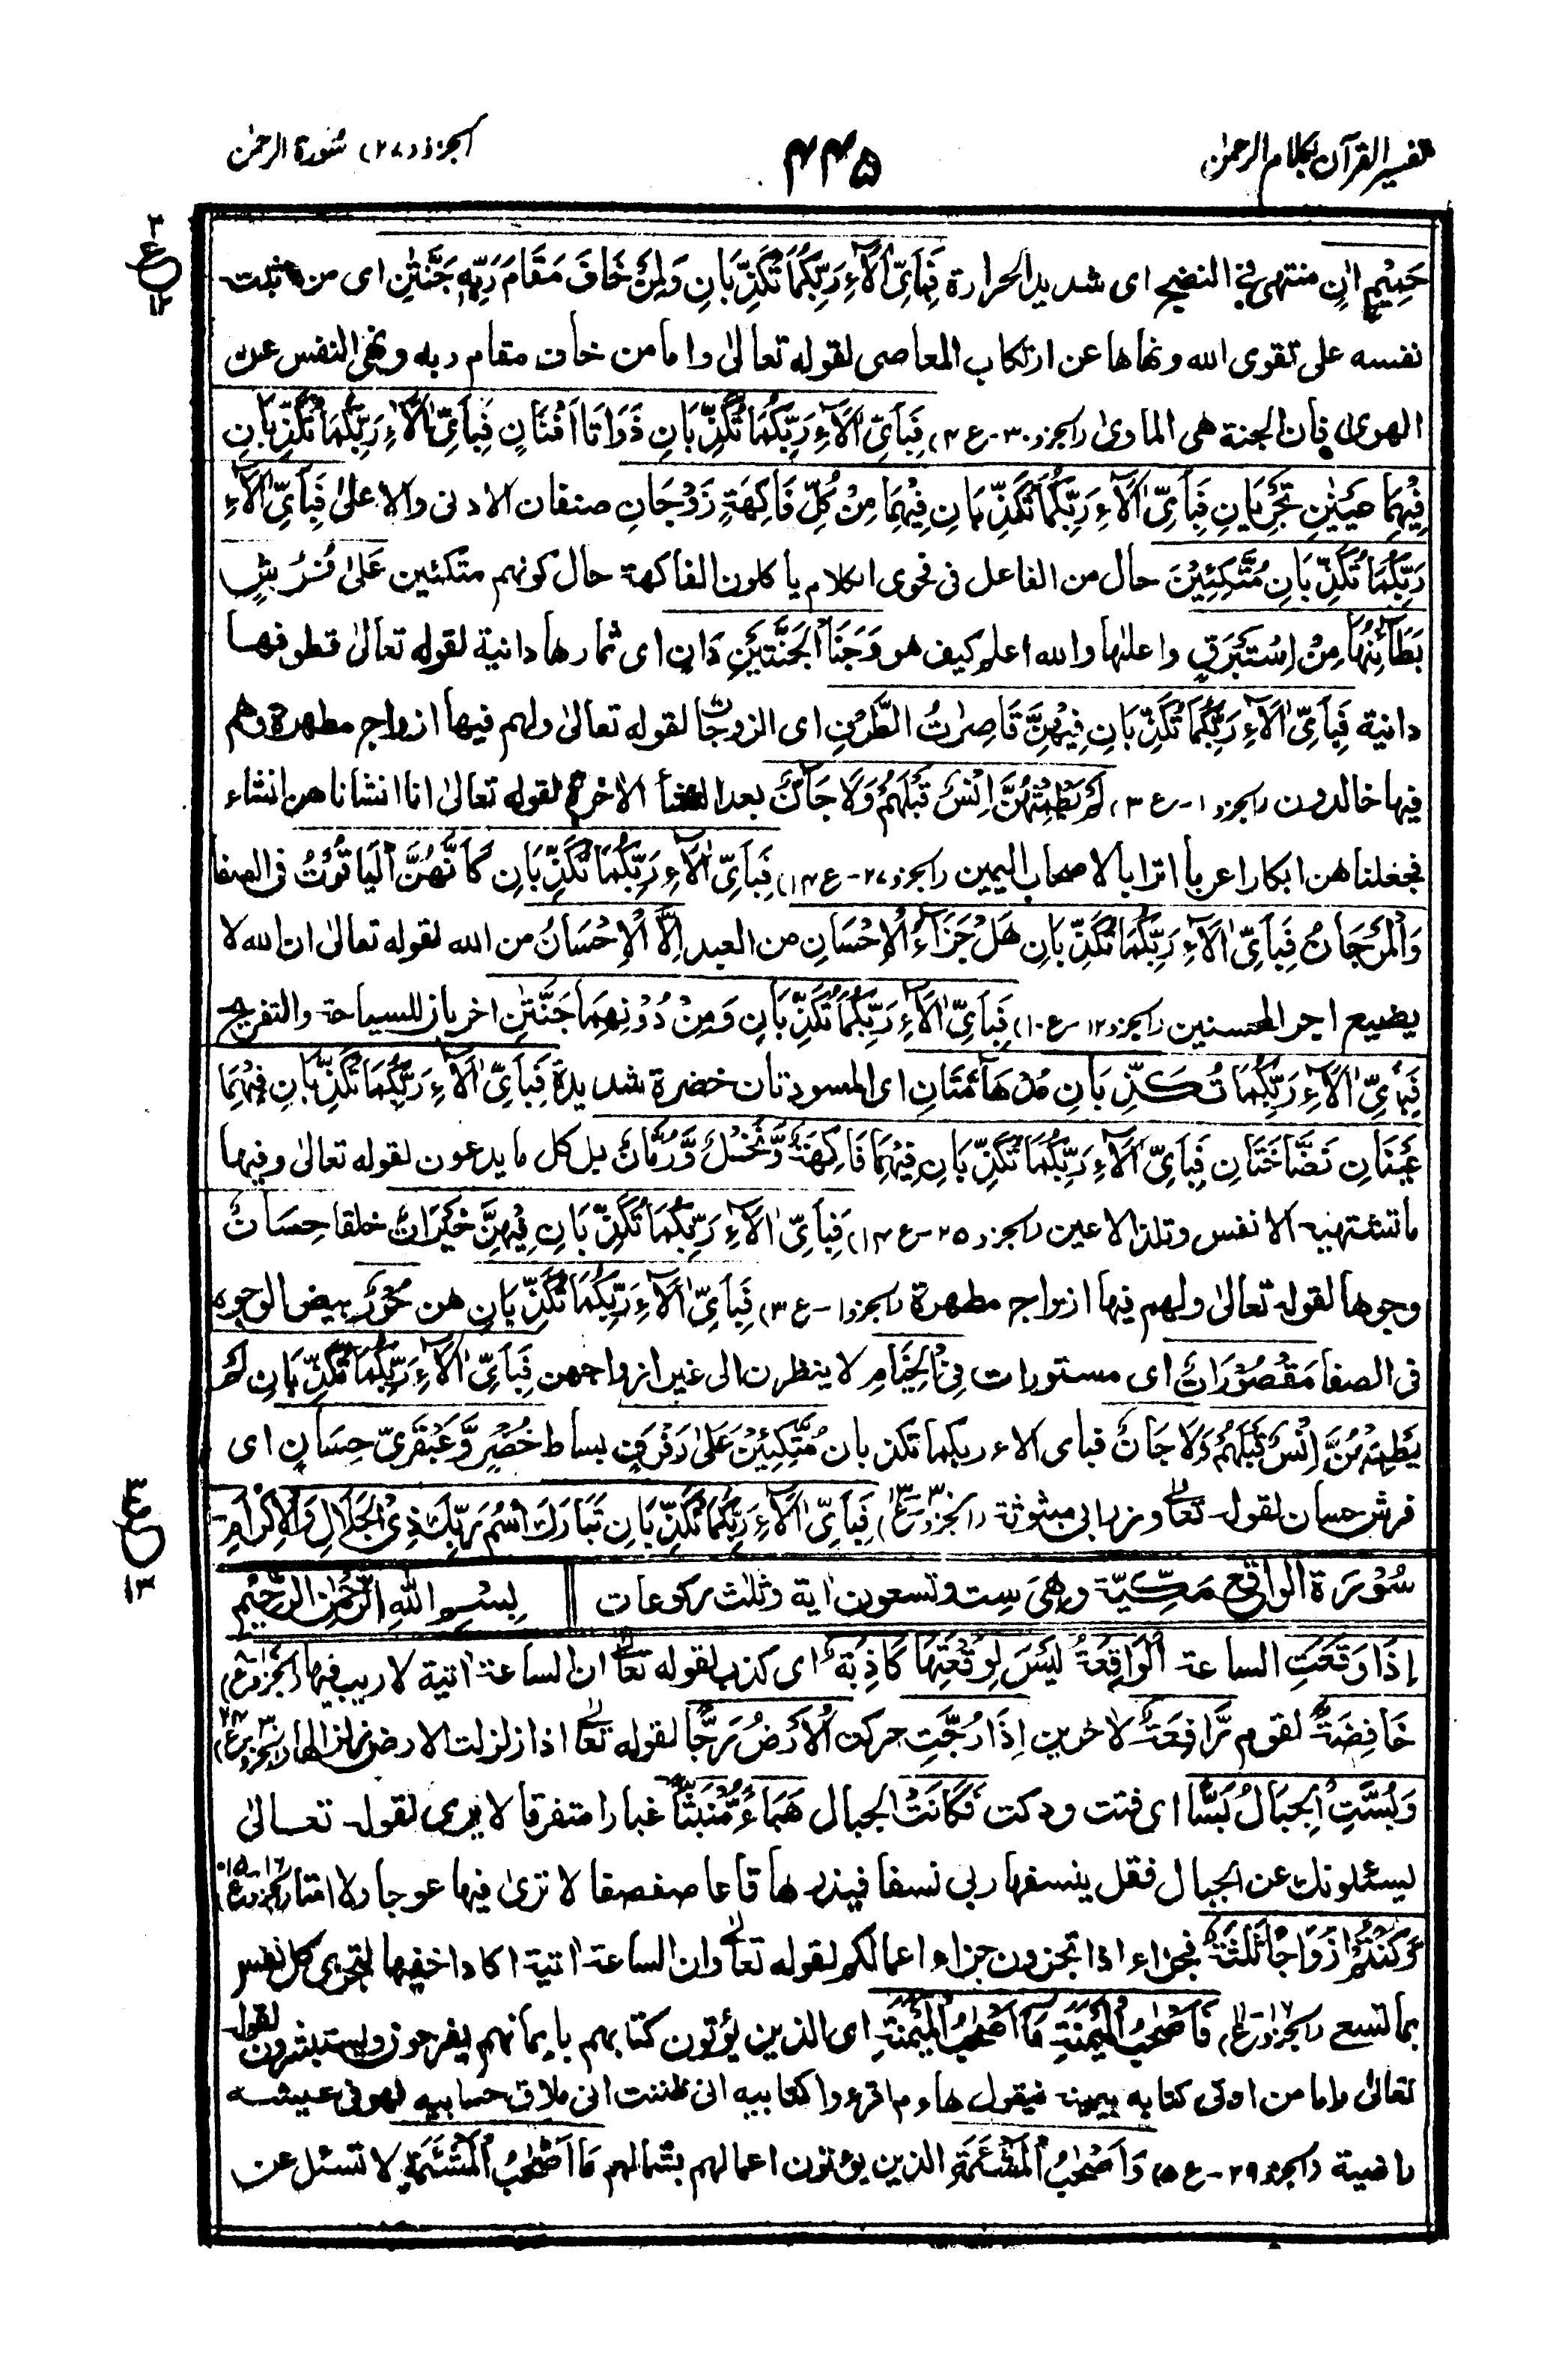 تفسير القرآن بكلام الرحمٰن
۴۴۵
الجزء (۲۷) سُورة الرحمٰن
حَمِيْمٍ اٰنٍ منتهى فى النضج اى شديد الحرارة فَبِاَيِّ اٰلَآءِ رَبِّكُمَا تُكَذِّبَانِ وَلِمَنْ خَافَ مَقَامَ رَبِّهٖ جَنَّتٰنِ اى من ثبت
نفسه على تقوى الله ونهاها عن ارتكاب المعاصى لقوله تعالىٰ واما من خاف مقام ربه ونهى النفس عن
الهوىٰ فأن الجنة هى الماوىٰ (الجزء ۳۰-ع ۴) فَبِاَيِّ اٰلَآءِ رَبِّكُمَا تُكَذِّبَانِ ذَوَاتَا اَفْنَانٍ فَبِاَيِّ اٰلَآءِ رَبِّكُمَا تُكَذِّبَانِ
فِيْهِمَا عَيْنٰنِ تَجْرِيَانِ فَبِاَيِّ اٰلَآءِ رَبِّكُمَا تُكَذِّبَانِ فِيْهِمَا مِنْ كُلِّ فَاكِهَةٍ زَوْجَانِ صنفان الادنى والاعلىٰ فَبِاَيِّ اٰلَآءِ
رَبِّكُمَا تُكَذِّبَانِ مُتَّكِئِيْنَ حال من الفاعل فى فحوى الكلام ياكلون الفاكهة حال كونهم متكئين عَلىٰ فُرُشٍ
بَطَآئِنُهَا مِنْ اِسْتَبْرَقٍ واعلٰها والله اعلم كيف هو وَجَنَا الْجَنَّتَيْنِ دَانٍ اى ثمارها دانية لقوله تعالىٰ قطوفها
دانية فَبِاَيِّ اٰلَآءِ رَبِّكُمَا تُكَذِّبَانِ فِيْهِنَّ قَاصِرٰتُ الطَّرْفِ اى الزوجات لقوله تعالىٰ ولهم فيها ازواج مطهرة وهم
فيها خالدون (الجزء ۱-ع ۳) لَمْ يَطْمِثْهُنَّ اِنْسٌ قَبْلَهُمْ وَلَا جَآنٌّ بعد النشأ الاخرة لقوله تعالىٰ انا انشاناهن انشاء
فجعلناهن ابكارا عربا اترابا لاصحاب اليمين (الجزء ۲۷-ع ۱۴) فَبِاَيِّ اٰلَآءِ رَبِّكُمَا تُكَذِّبَانِ كَاَنَّهُنَّ الْيَاقُوْتُ فى الصفا
وَالْمَرْجَانُ فَبِاَيِّ اٰلَآءِ رَبِّكُمَا تُكَذِّبَانِ هَلْ جَزَآءُ الْاِحْسَانِ من العبد اِلَّا الْاِحْسَانُ من الله لقوله تعالىٰ ان الله لا
يضيع اجر المحسنين (الجزء ۱۲-ع ۱۰) فَبِاَيِّ اٰلَآءِ رَبِّكُمَا تُكَذِّبَانِ وَمِنْ دُوْنِهِمَا جَنَّتٰنِ اخريان للسياحة والتفريح
فَبِاَيِّ اٰلَآءِ رَبِّكُمَا تُكَذِّبَانِ مُدْهَآمَّتَانِ اى المسودتان خضرة شديدة فَبِاَيِّ اٰلَآءِ رَبِّكُمَا تُكَذِّبَانِ فِيْهِمَا
عَيْنَانِ نَضَّاخَتَانِ فَبِاَيِّ اٰلَآءِ رَبِّكُمَا تُكَذِّبَانِ فِيْهِمَا فَاكِهَةٌ وَّنَخْلٌ وَّرُمَّانٌ بل كل ما يدعون لقوله تعالىٰ وفيها
ما تشتهيه الانفس وتلذ الاعين (الجزء ۲۵-ع ۱۳) فَبِاَيِّ اٰلَآءِ رَبِّكُمَا تُكَذِّبَانِ فِيْهِنَّ خَيْرَاتٌ خلقا حِسَانٌ
وجوها لقوله تعالىٰ ولهم فيها ازواج مطهرة (الجزء ۱-ع ۳) فَبِاَيِّ اٰلَآءِ رَبِّكُمَا تُكَذِّبَانِ هن حُوْرٌ بيض الوجوه
فى الصفا مَقْصُوْرَاتٌ اى مستورات فِى الْخِيَامِ لا ينظرن الى غير ازواجهن فَبِاَيِّ اٰلَآءِ رَبِّكُمَا تُكَذِّبَانِ لَمْ
يَطْمِثْهُنَّ اِنْسٌ قَبْلَهُمْ وَلَا جَانٌّ فباى الاء ربكما تكذبان مُتَّكِئِيْنَ عَلىٰ رَفْرَفٍ بساط خُضْرٍ وَّعَبْقَرِيٍّ حِسَانٍ اى
فرش حسان لقوله تعالىٰ وزرابى مبثوثة (الجزء ۳۰-ع ۱۳) فَبِاَيِّ اٰلَآءِ رَبِّكُمَا تُكَذِّبَانِ تَبَارَكَ اسْمُ رَبِّكَ ذِى الْجَلَالِ وَالْاِكْرَامِ
سُوْرَة الواقع مَكِّيَّة وهىَ ست وتسعون اٰية وثلٰث ركوعات
بِسْمِ اللهِ الرَّحْمٰنِ الرَّحِيْمِ
اِذَا وَقَعَتِ الساعة الْوَاقِعَةُ لَيْسَ لِوَقْعَتِهَا كَاذِبَةٌ اى كذب لقوله تعالىٰ ان الساعة اتية لا ريب فيها
خَافِضَةٌ لقوم رَّافِعَةٌ لاٰخرين اِذَا رُجَّتِ حركت الْاَرْضُ رَجًّا لقوله تعالىٰ اذا زلزلت الارض زلزالها
وَبُسَّتِ الْجِبَالُ بَسًّا اى فتت ودكت فَكَانَتْ الجبال هَبَاءً مُّنْبَثًّا غبارا متفرقا لا يرى لقوله تعالىٰ
يسئلونك عن الجبال فقل ينسفها ربى نسفا فيذرها قاعا صفصفا لا ترىٰ فيها عوجا ولا امتا
وَّكُنْتُمْ اَزْوَاجًا ثَلٰثَةً فجزاء اذا تجزون جزاء اعمالكم لقوله تعالىٰ وان الساعة اتية اكاد اخفيها لتجزى كل نفس
بما تسعى فَاَصْحٰبُ الْمَيْمَنَةِ مَا اَصْحٰبُ الْمَيْمَنَةِ اى الذين يؤتون كتابهم بايمانهم يفرحون ويستبشرون لقوله
تعالىٰ واما من اوتى كتابه بيمينه فيقول هاءم اقرءوا كتابيه انى ظننت انى ملاق حسابيه فهو فى عيشة
راضية (الجزء ۲۹-ع ۵) وَاَصْحٰبُ الْمَشْئَمَةِ الذين يؤتون اعمالهم بشمالهم مَا اَصْحٰبُ الْمَشْئَمَةِ لا تسئل عن
۲
ع
۱۲
۳
ع
۱۳